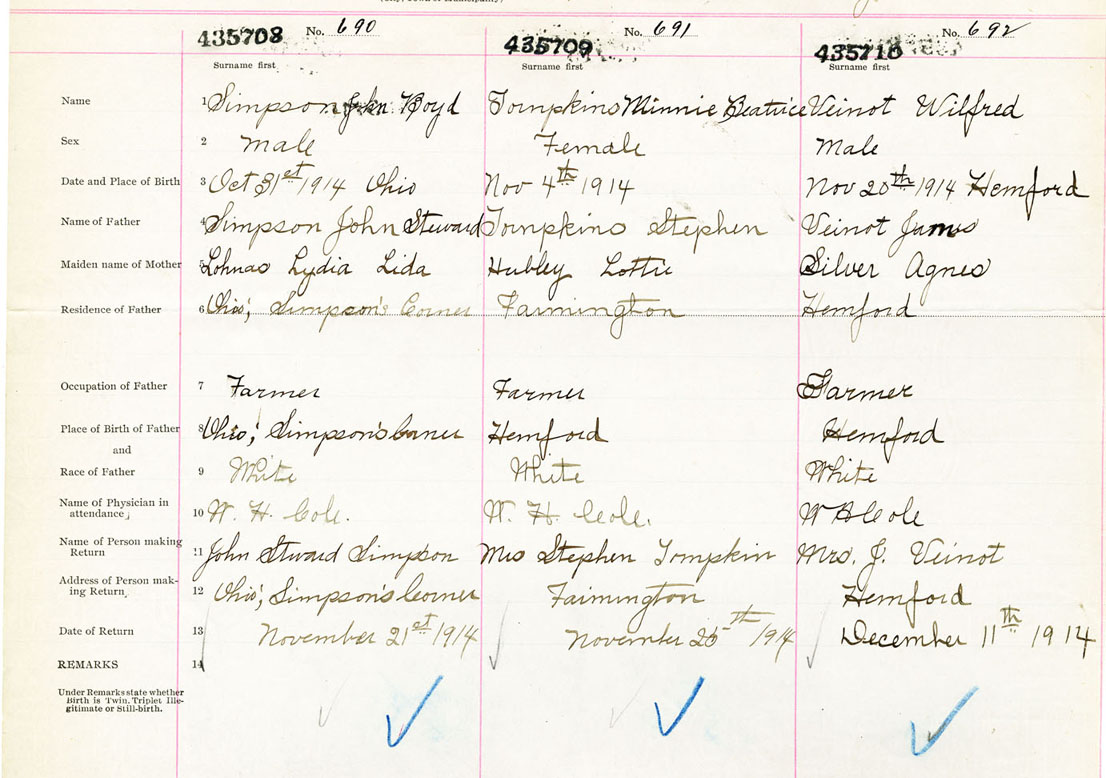 No. 690 No. 691 No. 692
435708 435709 435710
Surname first Surname first Surname first
Name 1 Simpson John Boyd Tompkins Minnie Beatrice Veinot Wilfred
Sex 2 Male Female Male
Date and Place of Birth 3 Oct 31st 1914 Ohio Nov 4th 1914 Nov 20th 1914 Hemford
Name of Father 4 Simpson John Steward Tompkins Stephen Veinot James
Maiden name of Mother 5 Lohnas Lydia Lida Hubley Lottie Silver Agnes
Residence of Father 6 Ohio; Simpson's Corner Farmington Hemford
Occupation of Father 7 Farmer Farmer Farmer
Place of Birth of Father 8 Ohio; Simpson's Corner Hemford Hemford
and
Race of Father 9 White White White
Name of Physician in
attendance 10 W. H. Cole. W. H. Cole. W H Cole
Name of Person making
Return 11 John Stward Simpson Mrs Stephen Tompkin Mrs. J. Veinot
Address of Person mak-
ing Return 12 Ohio; Simpson's Corner Faimington Hemford
Date of Return 13 November 21st 1914 November 25th 1914 December 11th 1914
REMARKS 14
Under Remarks state whether
Birth is Twin, Triplet Ille-
gitimate or Still-birth.